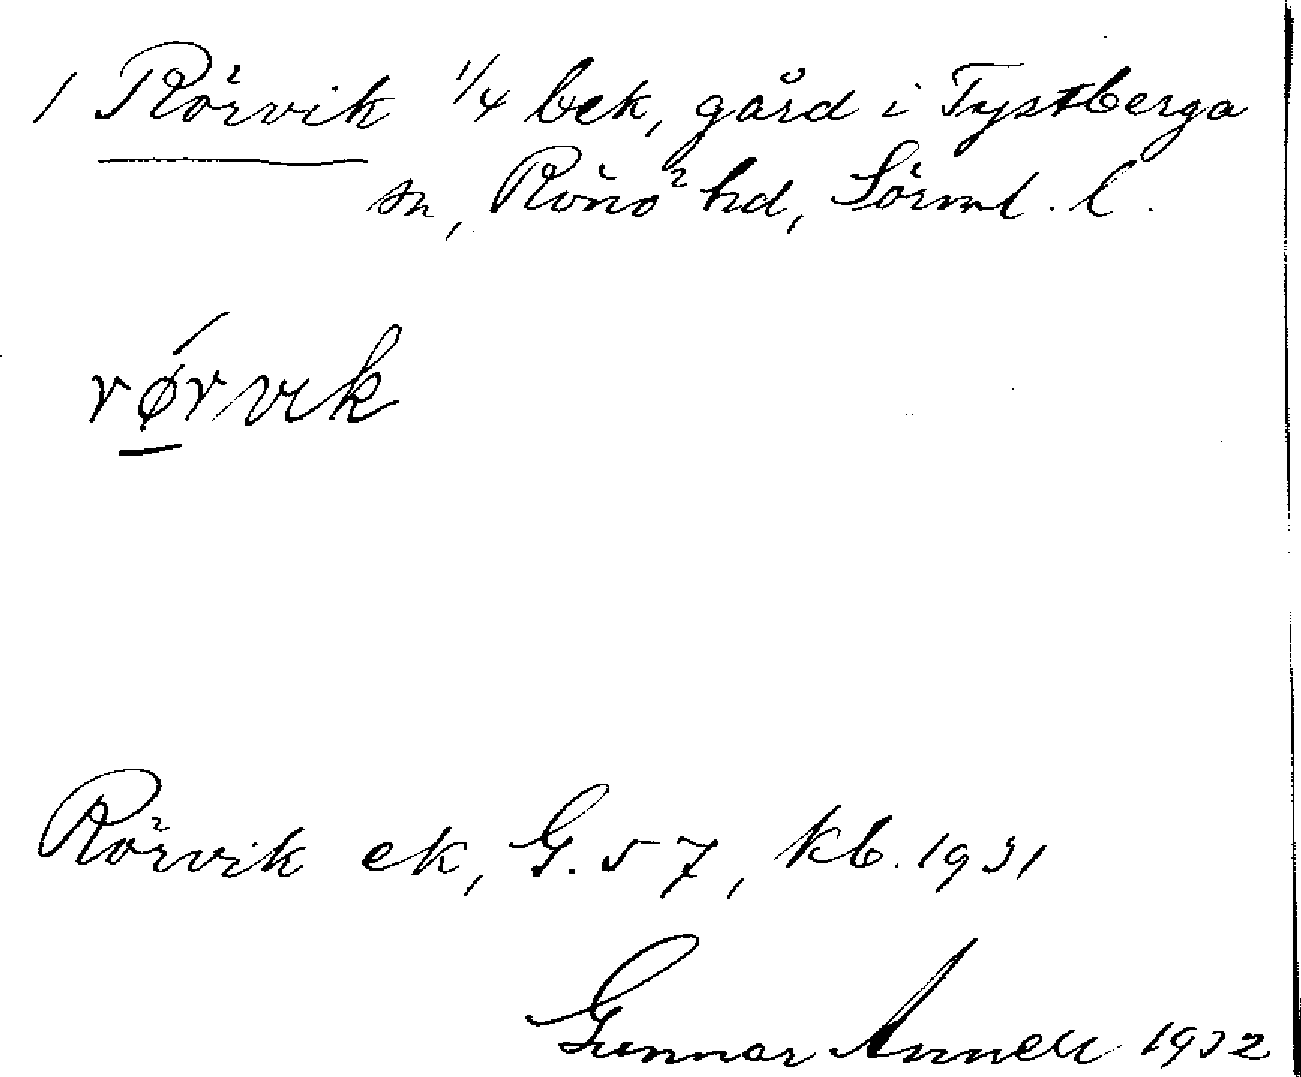 1 Rörvik 1/4 bek, gård i Tystberga
sn, Rönö hd, Sörml. l.
rørvik
Rörvik ek, G. 57, kb. 1931
Gunnar Annell 1932